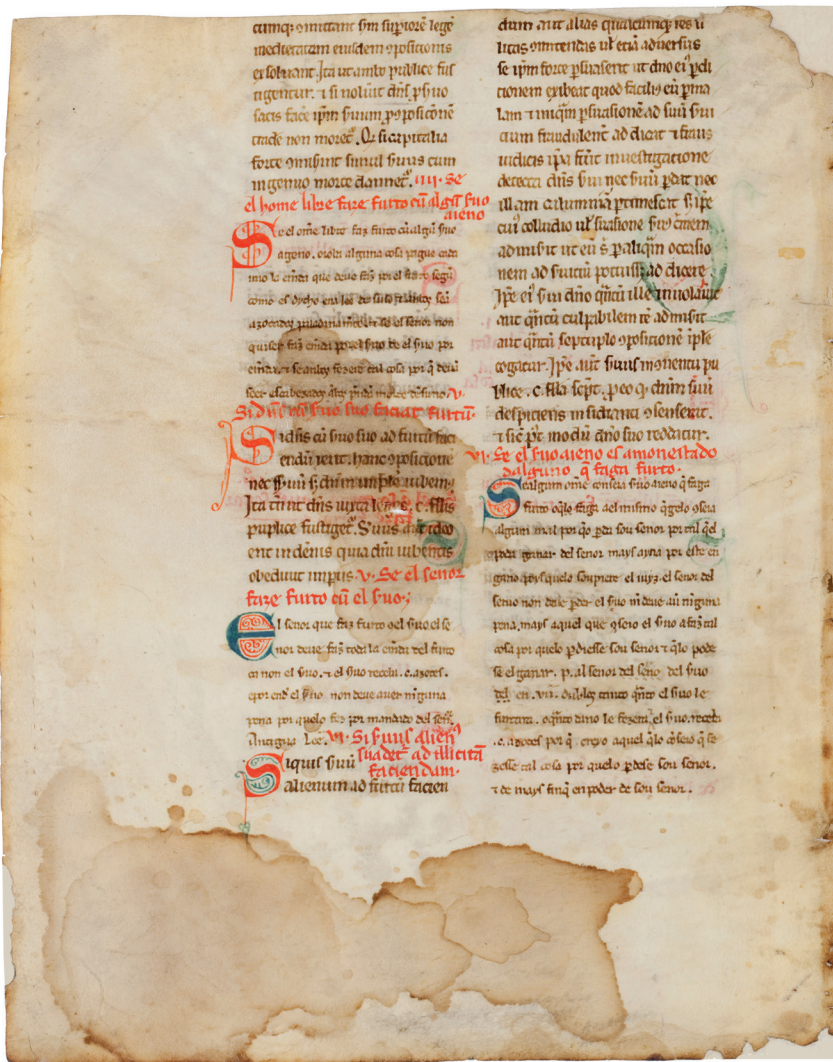 cumque omittant sm supiorē lege
medietatem eiusdem ɔpositionis
exsoluant. Ita ut ambo publice fus
tigentur. ⁊ si noluit dn̄s ꝑ suo
satis face ipm̄ suum
tradē non moret.
force simul suus cum
ingenuo morte damnet. IIII. Se
el home libre faze furto cū algū suo
aieno
Se el ome libre faz furto cū algū suo
ageno. o roba alguna cosa pague cada
uno la emda que deue faz por el furto segū
como es dicho en lee de suso ⁊ ambos seā
azotados paladinamēte ⁊ se el senor non
quiser faz emda por el suo de el suo por
emda. ⁊ se ambos tal cosa por q̄ deuā
seer V.
Si dn̄s cū suo suo faciat furtū.
Si dn̄s cū suo suo ad furtū faci
endū ierit. hanc ɔpositionē
nec
Ita tn̄ ut dn̄s iuxta c. fllis
puplice fustiget. Suus aut ideo
erit indēnis quia dn̄i iubentis
obediuit impiis. V. Se el senor
faze furto cū el suo.
El senor que faz furto cōl suo el se
nor deue faz toda la emda del furto
ca non el suo. ⁊ el suo reciba .c. azotes.
e por end el suo non deue auer niguna
pena por quelo fez por mandado del señ.
Antigua Lee. VI. Si suus alienus
suadet ad illicitā
faciendam.
Siquis suū
alienum ad furtū facien
dum aut alias qualicumq; res il
licitas ul etiā aduersus
se ipm̄ forte psuaserit ut dn̄o ei pdi
tionem exhibeat quod facilius eū ꝑ ma
lam ⁊ iniqm̄ psuasionē ad suū sui
cium fraudulent ad dicat ⁊ fraus
iudicis ipa fuit inuestigatione
detecta dn̄s sui nec suū pdat nec
illam calumnia s; ipe
cui colludio ul suasione suus c̄mem
admisit ut eū s. p aliqm̄ occasio
nem ad suitiū potuiss; addicere
Ipe ei sui dn̄o qn̄tū ille inuolauit
aut qn̄tū culpabilem se admisit
aut qn̄tū septuplo ɔpositionē iple
cogatur. Ipe aut suus pu
blice .c. flla sept.
despiciens insidianti ɔsenserit.
⁊ sic modū dn̄o suo reddatur.
VI. Se el suo aieno es amonestado
dalguno. q̄ faga furto.
Se algum ome conseia suo aieno q̄ faga
furto o q̄lo faga a el mismo
algun mal por qo pda sou senor por tal q̄el
poda ganar del senor mays ayna por este en
gano. poys quelo soupiere el iuyz. el senor del
seruo non deue pder el suo ni deue aū niguna
pena. mays aquel que ɔseio el suo a faz tal
cosa por quelo pdiesse sou senor ⁊ q̄lo pode
se el ganar. p. al senor del suo
en .VII. dublos tanto qn̄to el suo le
furtara. o qn̄to dano le fezera. el suo. reciba
.c. azotes por q̄ creyo aquel q̄lo ɔseio q̄ fe
zesse tal cosa por quelo pdese sou senor.
⁊ de mays finq̄ en poder de sou senor.